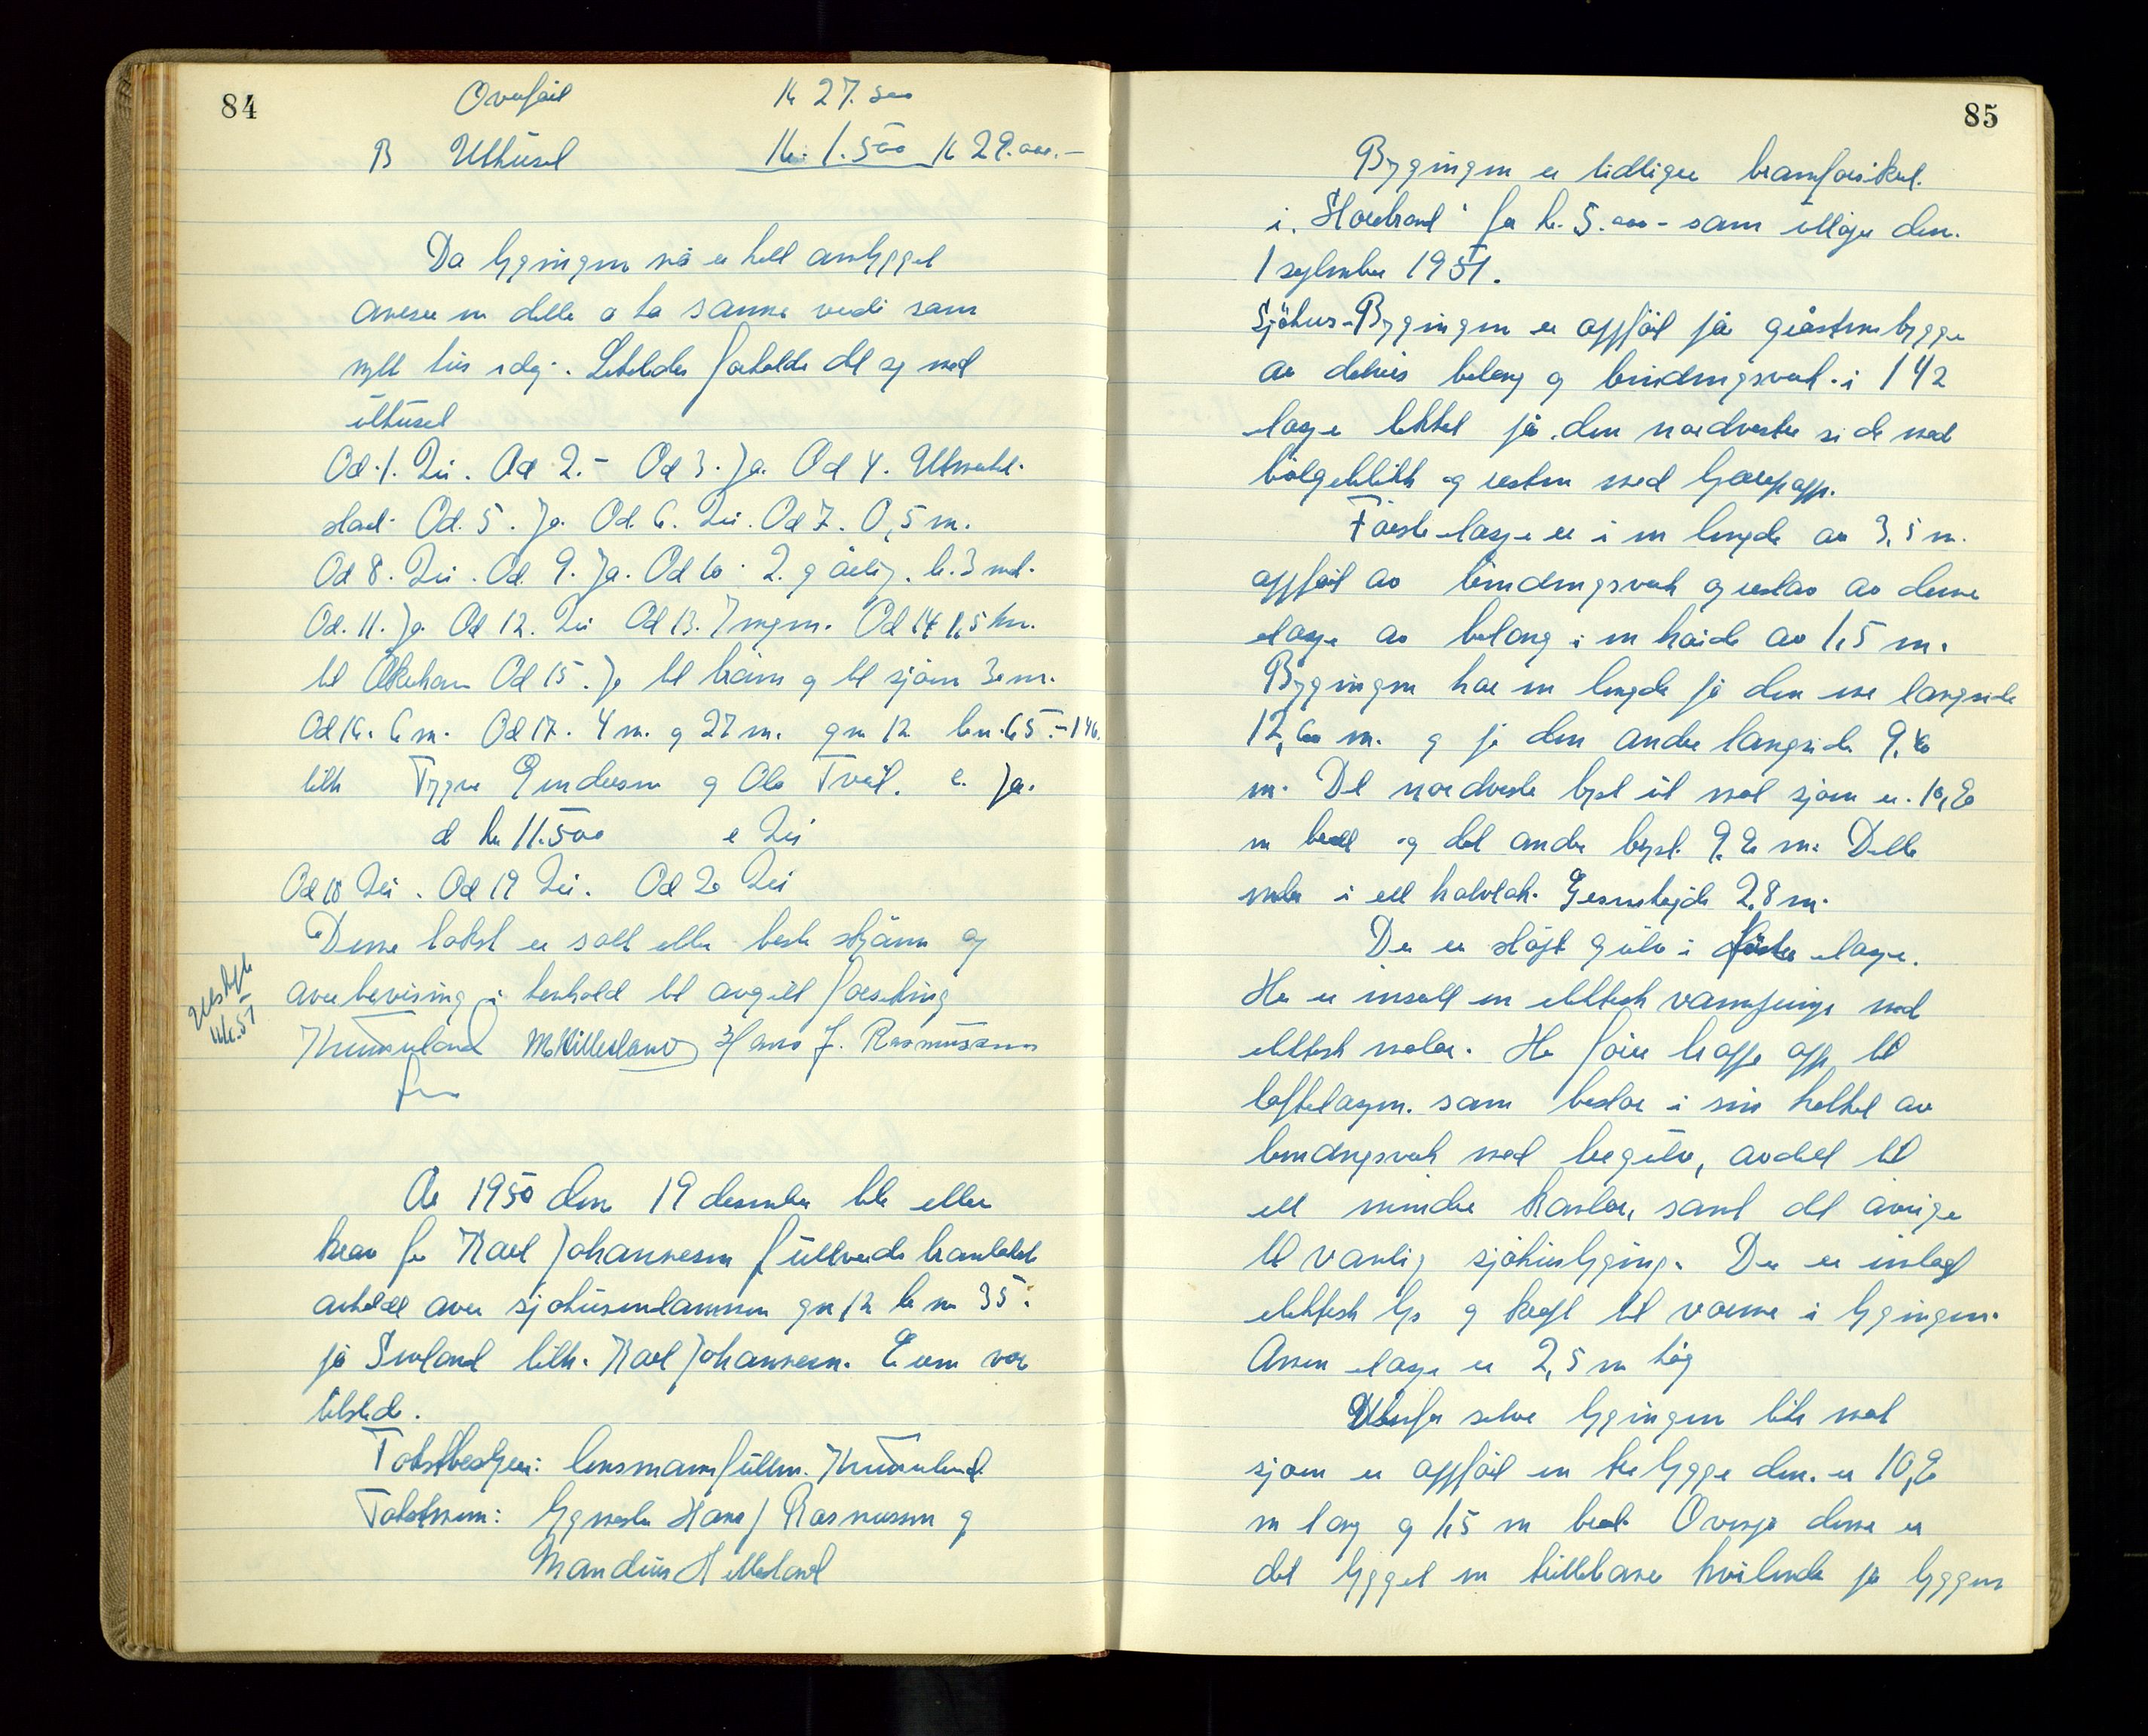 84
Overført kr 27.500
B Uthuset kr. 1.500 kr 29.000.-
Da bygningen nå er helt ombygget
ansees en dette å ha samme verdi som
nytt hus idag. Likeledes forholder det seg med
uthuset
Ad. 1. Nei. Ad 2. - Ad 3. Ja. Ad 4.
Ad. 5. Ja. Ad. 6. Nei. Ad 7. 0,5 m.
Ad 8. Nei. Ad. 9. Ja. Ad 10. 2. g årlig. b. 3 md.
Ad. 11. Ja Ad 12. Nei Ad 13. Ingen. Ad 14 1,5 km.
til Åkrehavn Ad 15. Ja til brønn og til sjøen 30 m.
Ad 16. 6 m. Ad 17. 4 m. og 27 m. gn 12 bn. 65.-146.
tilh Trygve Endresen og Ola Tveit. c. Ja.
d kr 11.500 e Nei
Ad 18 Nei. Ad 19 Nei. Ad 20 Nei
Denne takst er satt etter beste skjønn og
overbevisning i henhold til avgitt forsikring
Utskrift
M Hillesland Hans J. Rasmussen
År 1950 den 19 desember ble etter
krav fra Karl Johannesen fullverdi branntakst
avholdt over sjøhuseiendommen gn 12 br nr 35.
på Sevland tilh. Karl Johannesen. Eieren var
tilstede.
Takstbestyrer: lensmannsfullm.
Takstmenn: byggmester Hans J Rasmussen og
Mandius Hillesland
85
Bygningen er tidligere brannforsikret.
i "Storebrand" for kr. 5.000 - som utløper den.
1 september 1951.
Sjøhus-Bygningen er oppført på gråsteinsbrygge
av delvis betong og bindingsverk. i 1 1/2
etasje kledt på den nordvestre side med
bølgeblikk og resten med
Første etasje er i en lengde av 3,5 m.
oppført av bindingsverk og resten av denne
etasje av betong i en høide av 1,5 m.
Bygningen har en lengde på den ene langside
12,60 m. og på den andre langside 9,40
m. Det nordvestre bryst ut mot sjøen er 10,20
m bredt og det andre bryst. 9,20 m. Dette
ender i ett halvtak. Gesimshøjde 2,8 m.
Der er støpt gulv i første etasje.
Her er innsatt en elektrisk vannpumpe med
elektrisk motor. Her fører trappe opp til
loftetasjen. som består i sin helhet av
bindingsverk med tregulv, avdelt til
ett mindre kontor, samt det øvrige
til vanlig sjøhusbygning. Der er innlagt
elektrisk lys og kraft til varme i bygningen.
Annen etasje er 2,5 m høg
Utenfor selve bygningen like mot
sjøen er oppført en tre brygge den. er 10,20
m lang og 1,5 m bred. Ovenpå denne er
det bygget en hvilende på bryggen